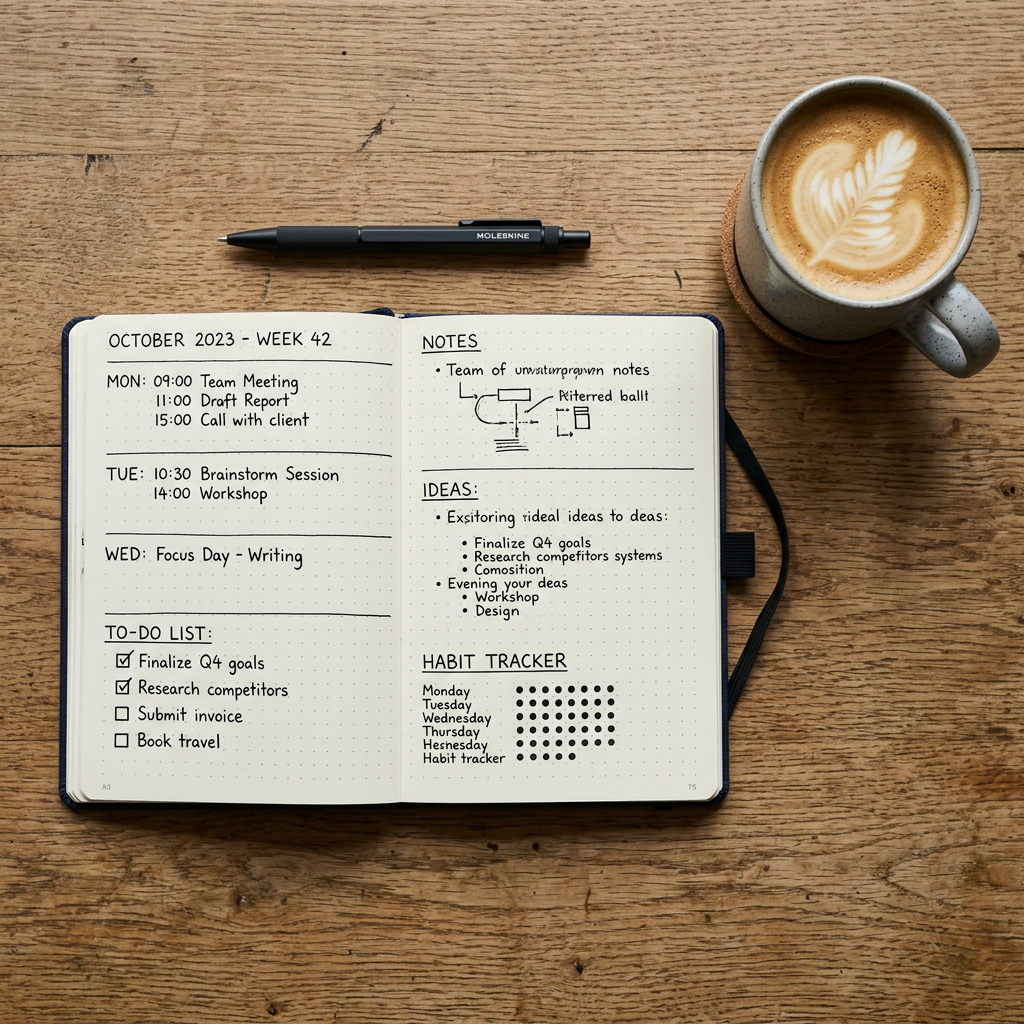 MOLESNINE
OCTOBER 2023 - WEEK 42
MON: 09:00 Team Meeting
11:00 Draft Report
15:00 Call with client
TUE: 10:30 Brainstorm Session
14:00 Workshop
WED: Focus Day - Writing
TO-DO LIST:
Finalize Q4 goals
Research competitors
Submit invoice
Book travel
A5
NOTES
• Team of notes
IDEAS:
• Exsitoring rideal ideas to deas:
• Finalize Q4 goals
• Research competitors systems
• Comosition
• Evening your deas
• Workshop
• Design
HABIT TRACKER
Monday
Tuesday
Wednesday
Thursday
Hesnesday
Habit tracker
75